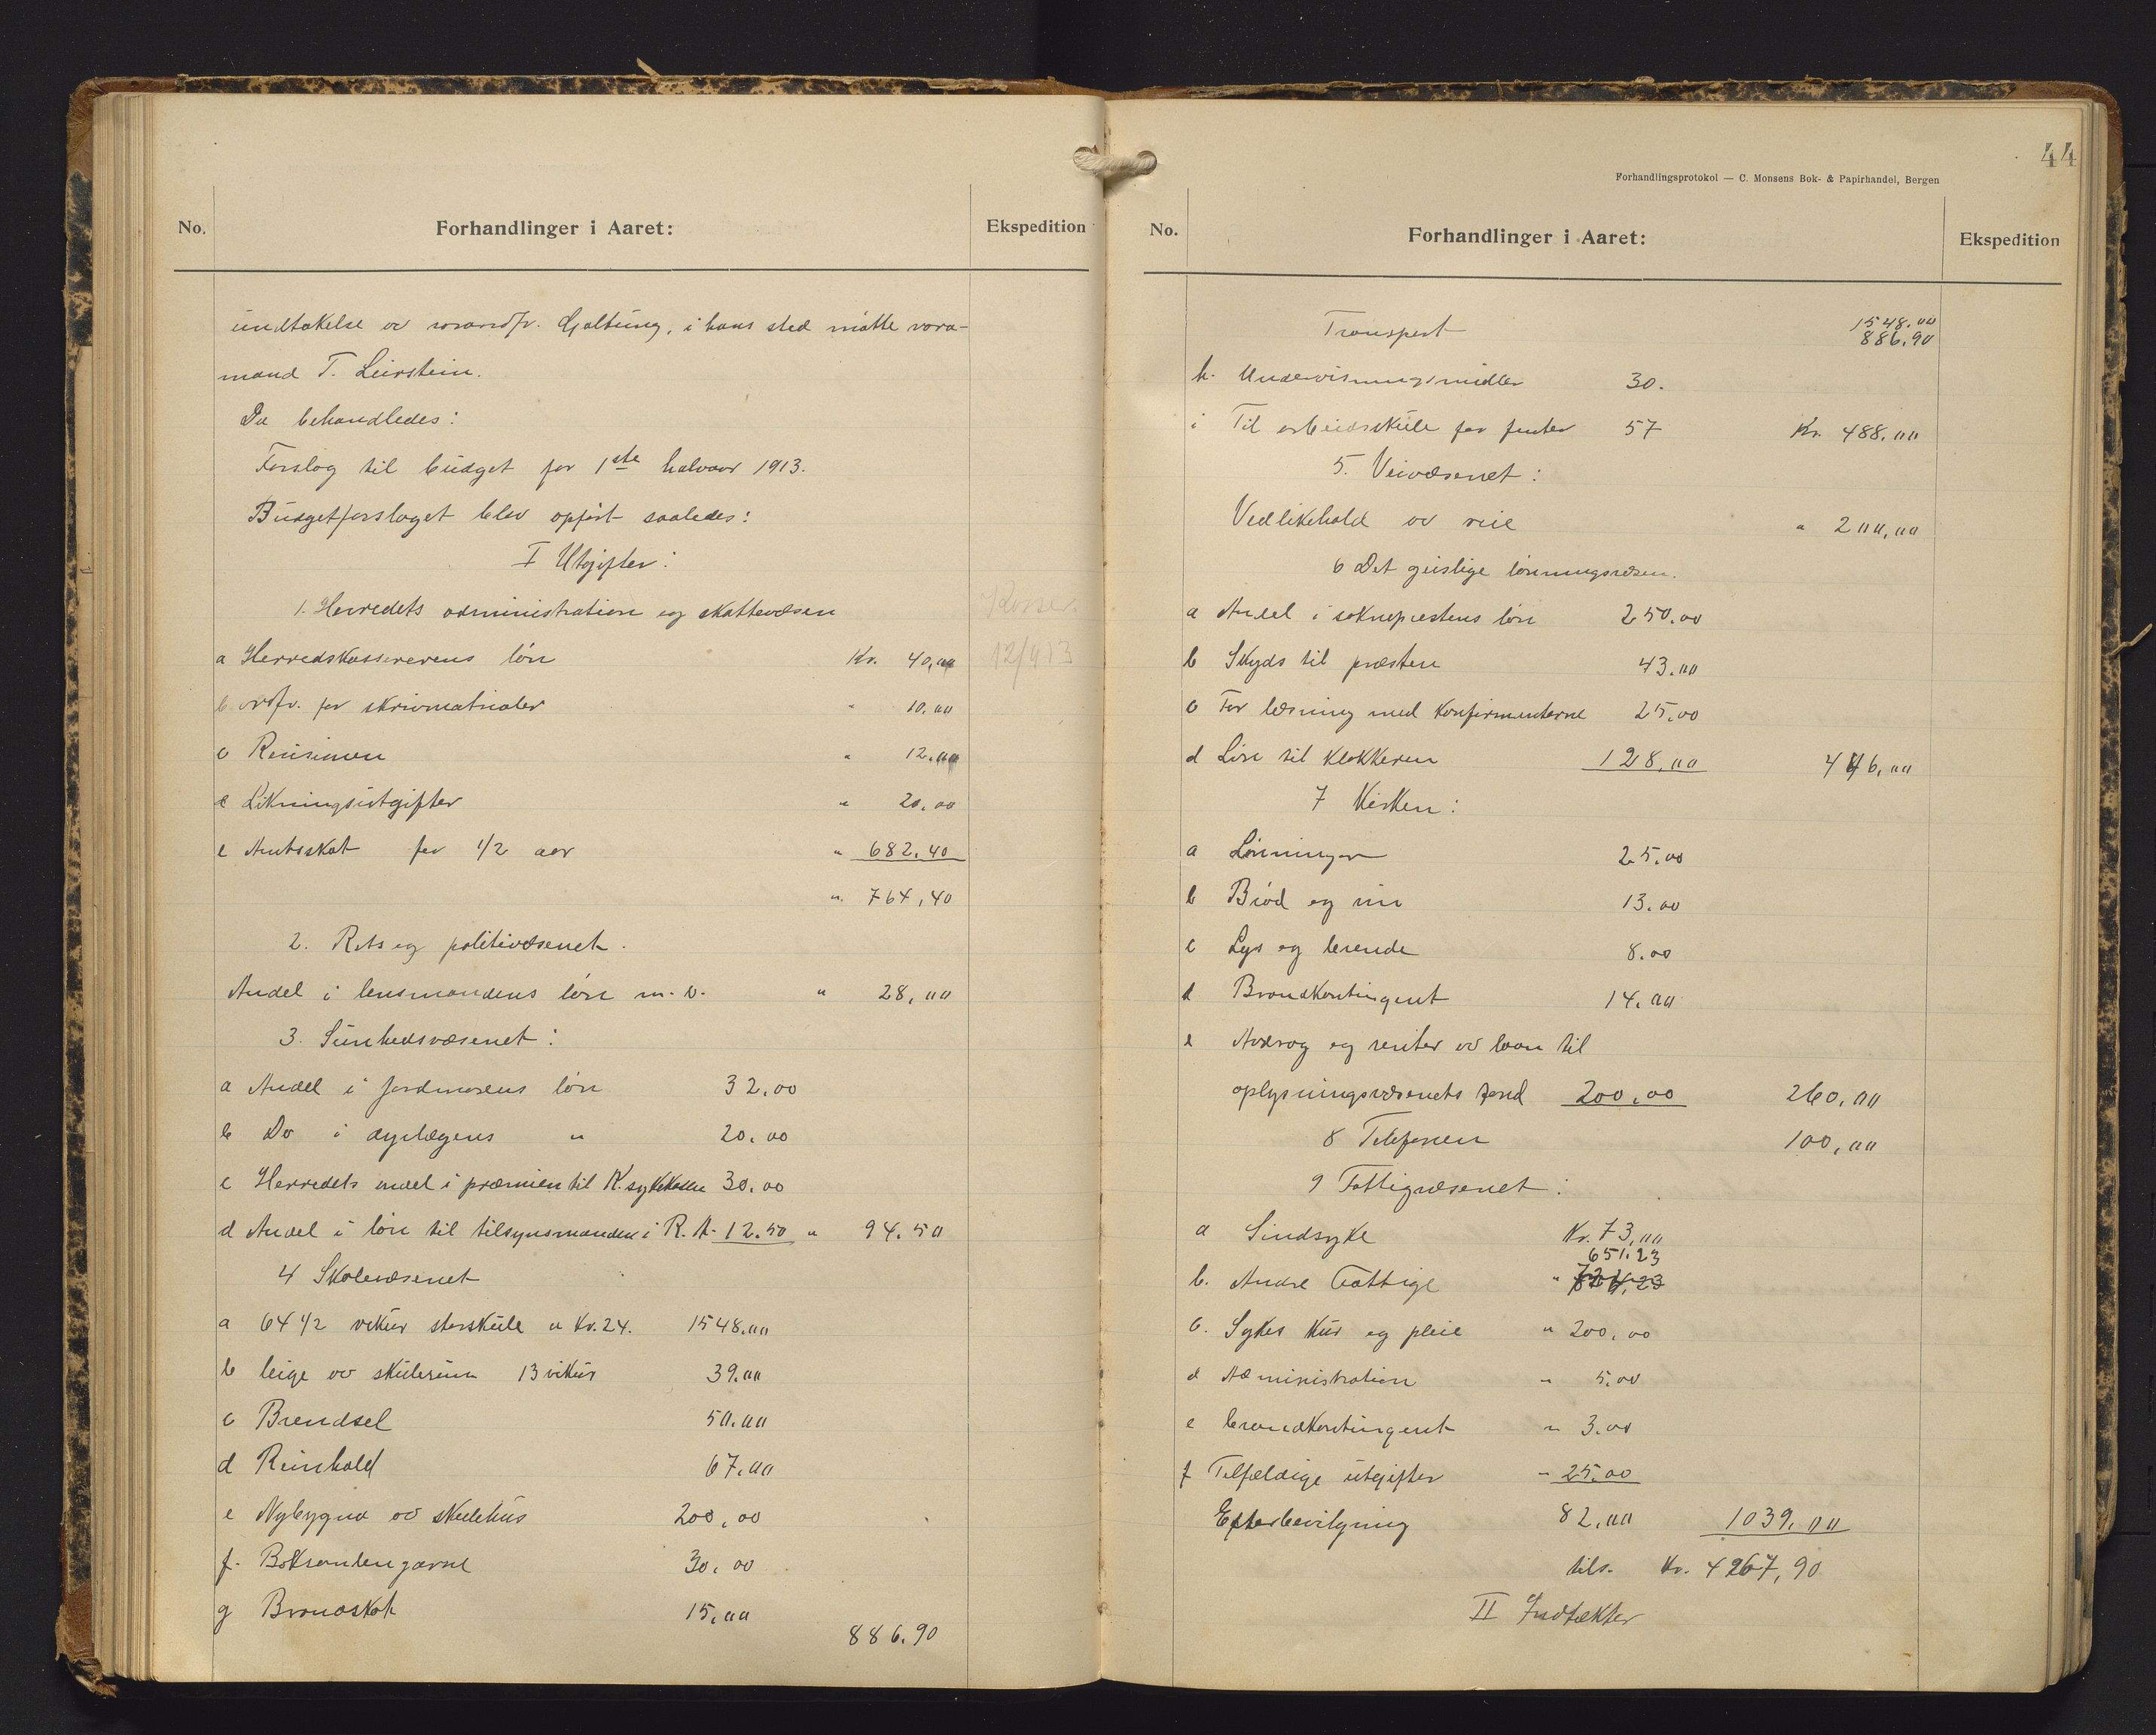 No.
Forhandlinger i Aaret:
Ekspedition
undtakelse av varaordfr. Galtung, i hans sted møtte vara-
mand T. Leirstein.
Da behandledes:
Forslag til budget for 1ste halvaar 1913.
Budgetforslaget blev opført saaledes:
I Utgifter:
1. Herredets administration og skattevæsen
Kasser.
a Herredskassererens løn Kr. 40,00
12/4 13
b ordfr. for skrivmatrialer " 10.00
c Revisionen " 12.00
d Likningsutgifter " 20.00
e Amtsskat for 1/2 aar " 682.40
" 764,40
2. Rets og politivæsenet.
Andel i lensmandens løn m.v. " 28,00
3. Sunhedsvæsenet:
a Andel i jordmorens løn 32.00
b Do i dyrlægens " 20.00
c Herredets andel i præmien til K. sykekasse 30.00
d Andel i løn til tilsynsmanden i R. A. 12.50 " 94.50
4 Skolevæsenet
a 64 1/2 vikur storskule a Kr. 24. 1548.00
b leige av skulerum 13 vikur 39.00
c Brendsel 50.00
d Reinhald 67.00
e Nybygna av skulehus 200,00
f. Boksamlengarne 30.00
g Brandskat 15,00
886.90
44
Forhandlingsprotokol — C. Monsens Bok- & Papirhandel, Bergen
No.
Forhandlinger i Aaret:
Ekspedition
Transport 1548.00
886,90
h. Undervisningsmidler 30.
i Til arbeidsskule for jenter 57 Kr. 488,00
5. Veivæsenet:
Vedlikehald av veie " 200,00
6 Det geislige lønningsvæsen.
a Andel i soknepræstens løn 250.00
b Skyds til præsten 43.00
c For læsning med konfirmenterne 25.00
d Løn til klokkeren 128,00 446,00
7 Kirken:
a Lønninger 25.00
b Brød og vin 13.00
c Lys og lerende 8.00
d Brandkontingent 14.00
e Avdrag og renter av laan til
oplysningsvæsenets fond 200.00 260,00
8 Telefonen 100,00
9 Fattigvæsenet:
a Sindsyke Kr. 73,00
651.23
b. Andre Fattige "
c. Sykes kur og pleie " 200,00
d Administration " 5.00
e brandkontingent " 3.00
f Tilfældige utgifter " 25.00
Efterbevilgning 82,00 1039,00
tils. Kr. 4267,90
II Indtækter